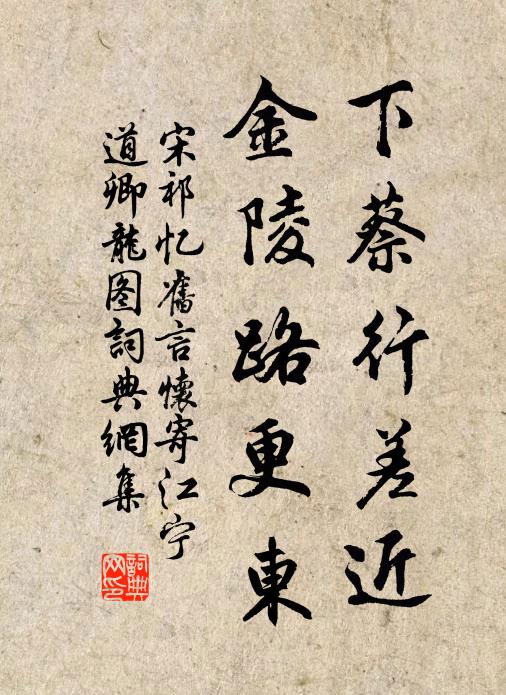 下蔡行差近
金陵路更東
宋祁忆舊言懷寄江宁
道卿龍图詞典網集
詞典
网印